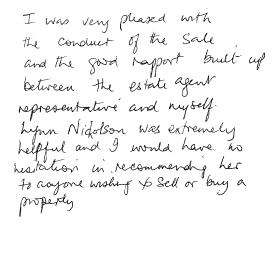 I was very pleased with
the conduct of the sale
and the good rapport built up
between the estate agent
representative and myself.
Lynn Nicholson was extremely
helpful and I would have no
hesitation in recommending her
to anyone wishing to sell or buy a
property